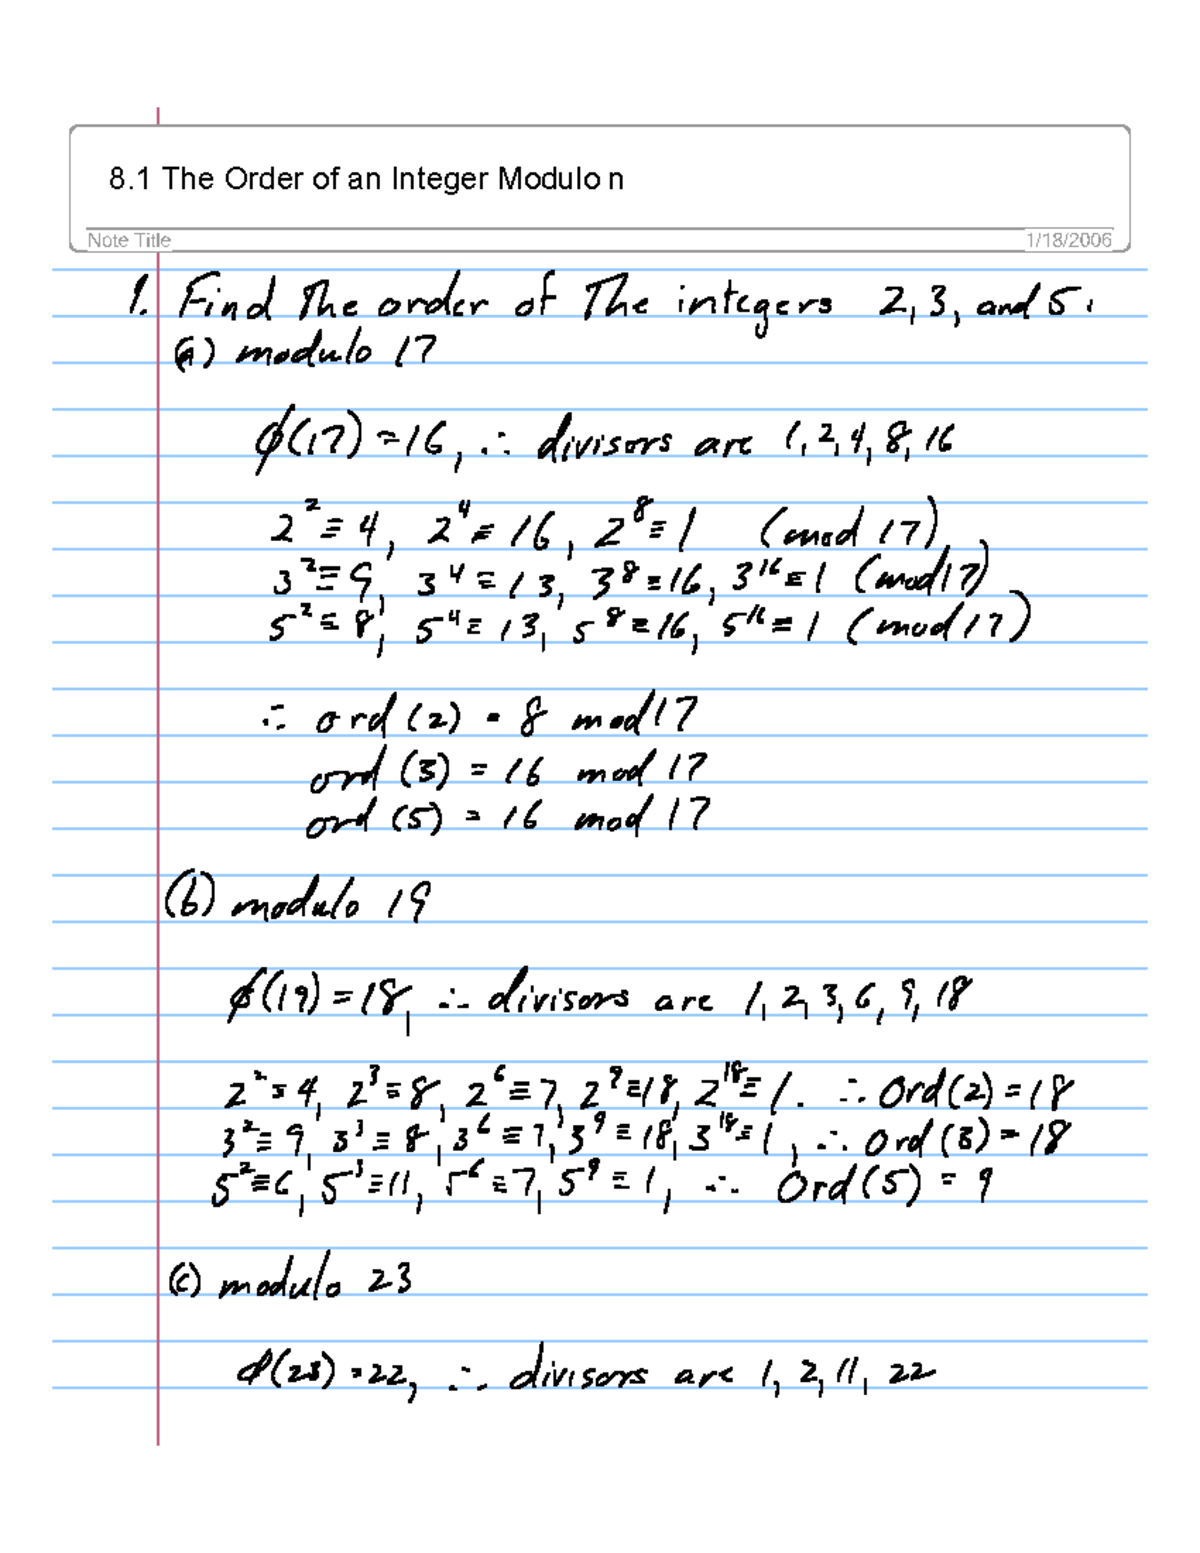 8.1 The Order of an Integer Modulo n
Note Title 1/18/2006
1. Find The order of The integers 2, 3, and 5.
(a) modulo 17
ϕ(17) = 16, ∴ divisors are 1, 2, 4, 8, 16
2² ≡ 4, 2⁴ ≡ 16, 2⁸ ≡ 1 (mod 17)
3² ≡ 9, 3⁴ ≡ 13, 3⁸ ≡ 16, 3¹⁶ ≡ 1 (mod 17)
5² ≡ 8, 5⁴ ≡ 13, 5⁸ ≡ 16, 5¹⁶ ≡ 1 (mod 17)
∴ ord (2) = 8 mod 17
ord (3) = 16 mod 17
ord (5) = 16 mod 17
(b) modulo 19
ϕ(19) = 18, ∴ divisors are 1, 2, 3, 6, 9, 18
2² ≡ 4, 2³ ≡ 8, 2⁶ ≡ 7, 2⁹ ≡ 18, 2¹⁸ ≡ 1. ∴ Ord(2) = 18
3² ≡ 9, 3³ ≡ 8, 3⁶ ≡ 7, 3⁹ ≡ 18, 3¹⁸ ≡ 1, ∴ Ord (3) = 18
5² ≡ 6, 5³ ≡ 11, 5⁶ ≡ 7, 5⁹ ≡ 1, ∴ Ord(5) = 9
(c) modulo 23
ϕ(23) = 22, ∴ divisors are 1, 2, 11, 22